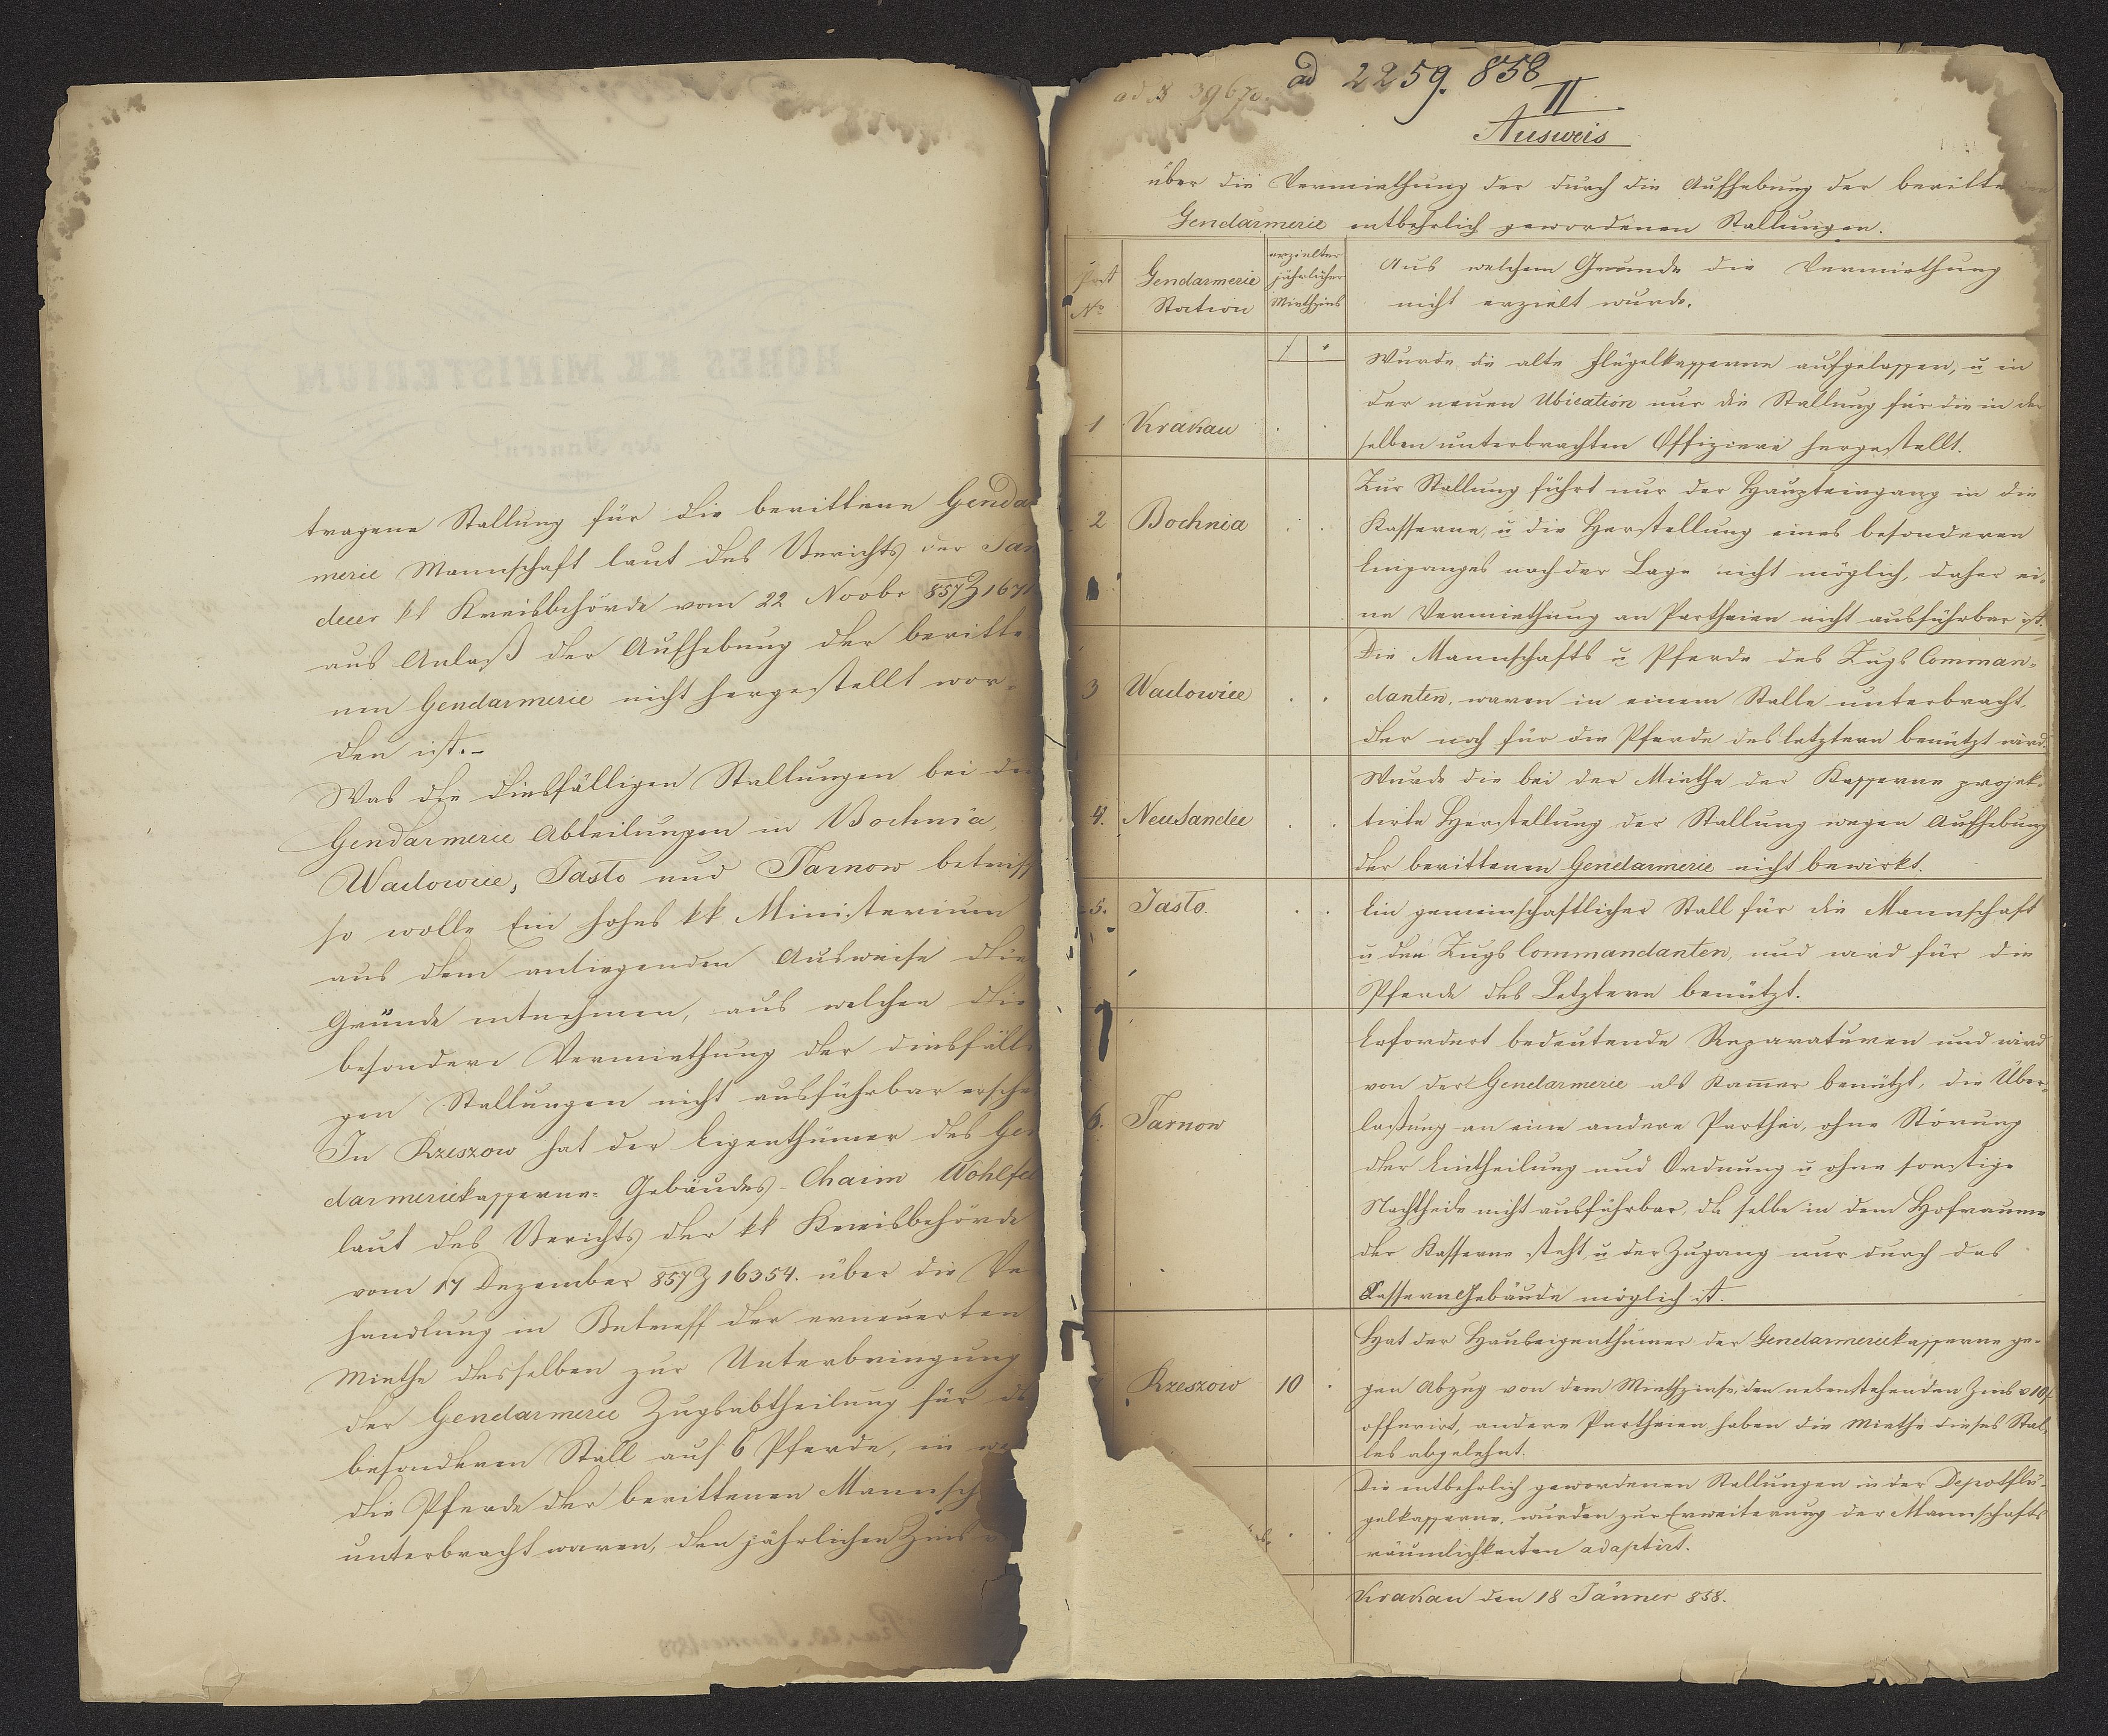 tragene Stallung für die berittene Gendar
merie Mannschaft laut des Berichts der San
decer kk Kreisbehörde vom 22 Novbr 857 Z 1671
aus Anlaß der Aufhebung der beritte-
nen Gendarmerie nicht hergestellt wor-
den ist.-
Was die diesfälligen Stallungen bei den
Gendarmerie Abteilungen in Bochnia,
Wadowice, Jasło und Tarnow betrifft
so wolle Ein hohes kk. Ministerium
aus dem anliegenden Ausweise die
Gründe entnehmen, aus welchen die
besondere Vermiethung der diesfälli
gen Stallungen nicht ausführbar ersche
In Rzeszow hat der Eigenthümer des Gen
darmeriekasserne-Gebäudes-Chaim Wohlfel
laut des Berichts der kk Kreisbehörde
vom 17 Dezember 857 Z 16354. über die Ve
handlung in Betreff der erneuerten
Miethe desselben zur Unterbringung
der Gendarmerie Zugsabtheilung für de
besonderen Stall auf 6 Pferde, in we
die Pferde der berittenen Mannsch
unterbracht waren, den jährlichen Zins v
ad N 3967
ad 2259. 858
II
Ausweis
über die Vermiethung der durch die Aufhebung der beritte
Gendarmerie entbehrlich gewordenen Stallungen.
Post No
Gendarmerie Station
erzielter jährlicher Miethzins
Aus welchem Grunde die Vermiethung
nicht erzielt wurde.
f x
Wurde die alte Flügelkasserne aufgelassen, u in
der neuen Ubication nur die Stallung für die in der
1 Krakau . . selben unterbrachten Offiziere hergestellt.
Zur Stallung führt nur der Haupteingang in die
2 Bochnia . . Kasserne, u die Herstellung eines besonderen
Einganges nach der Lage nicht möglich, daher ei-
ne Vermiethung an Partheien nicht ausführbar ist.
Die Mannschafts u Pferde des Zugs Comman-
3 Wadowice . . danten, waren in einem Stalle unterbracht,
der noch für die Pferde des letztern benützt wird.
Wurde die bei der Miethe der Kasserne projek-
4. NeuSandec . . tirte Herstellung der Stallung wegen Aufhebung
der berittenen Gendarmerie nicht bewirkt.
5. Jasło. . . Ein gemeinschaftlicher Stall für die Mannschaft
u den Zugs Commandanten, und wird für die
Pferde des Letztern benützt.
Erfordert bedeutende Reparaturen und wird
von der Gendarmerie als Kamer benützt, die Über-
6. Tarnow laßung an eine andere Parthei, ohne Störung
der Eintheilung und Ordnung u ohne sonstige
Nachtheile nicht ausführbar, da selbe in dem Hofraume
der Kasserne steht, u der Zugang nur durch das
Kassern Gebäude möglich ist.
Hat der Hauseigenthümer der Gendarmeriekasserne ge-
Rzeszow 10 . gen Abzug von dem Miethzinse, den nebenstehenden Zins v 10 f
offerirt, andere Partheien haben die Miethe dieses Stal-
les abgelehnt.
Die entbehrlich gewordenen Stallungen in der Depotflü-
gelkasserne, wurden zur Erweiterung der Mannschafts
räumlichkeiten adaptirt.
Krakau den 18 Jänner 858.